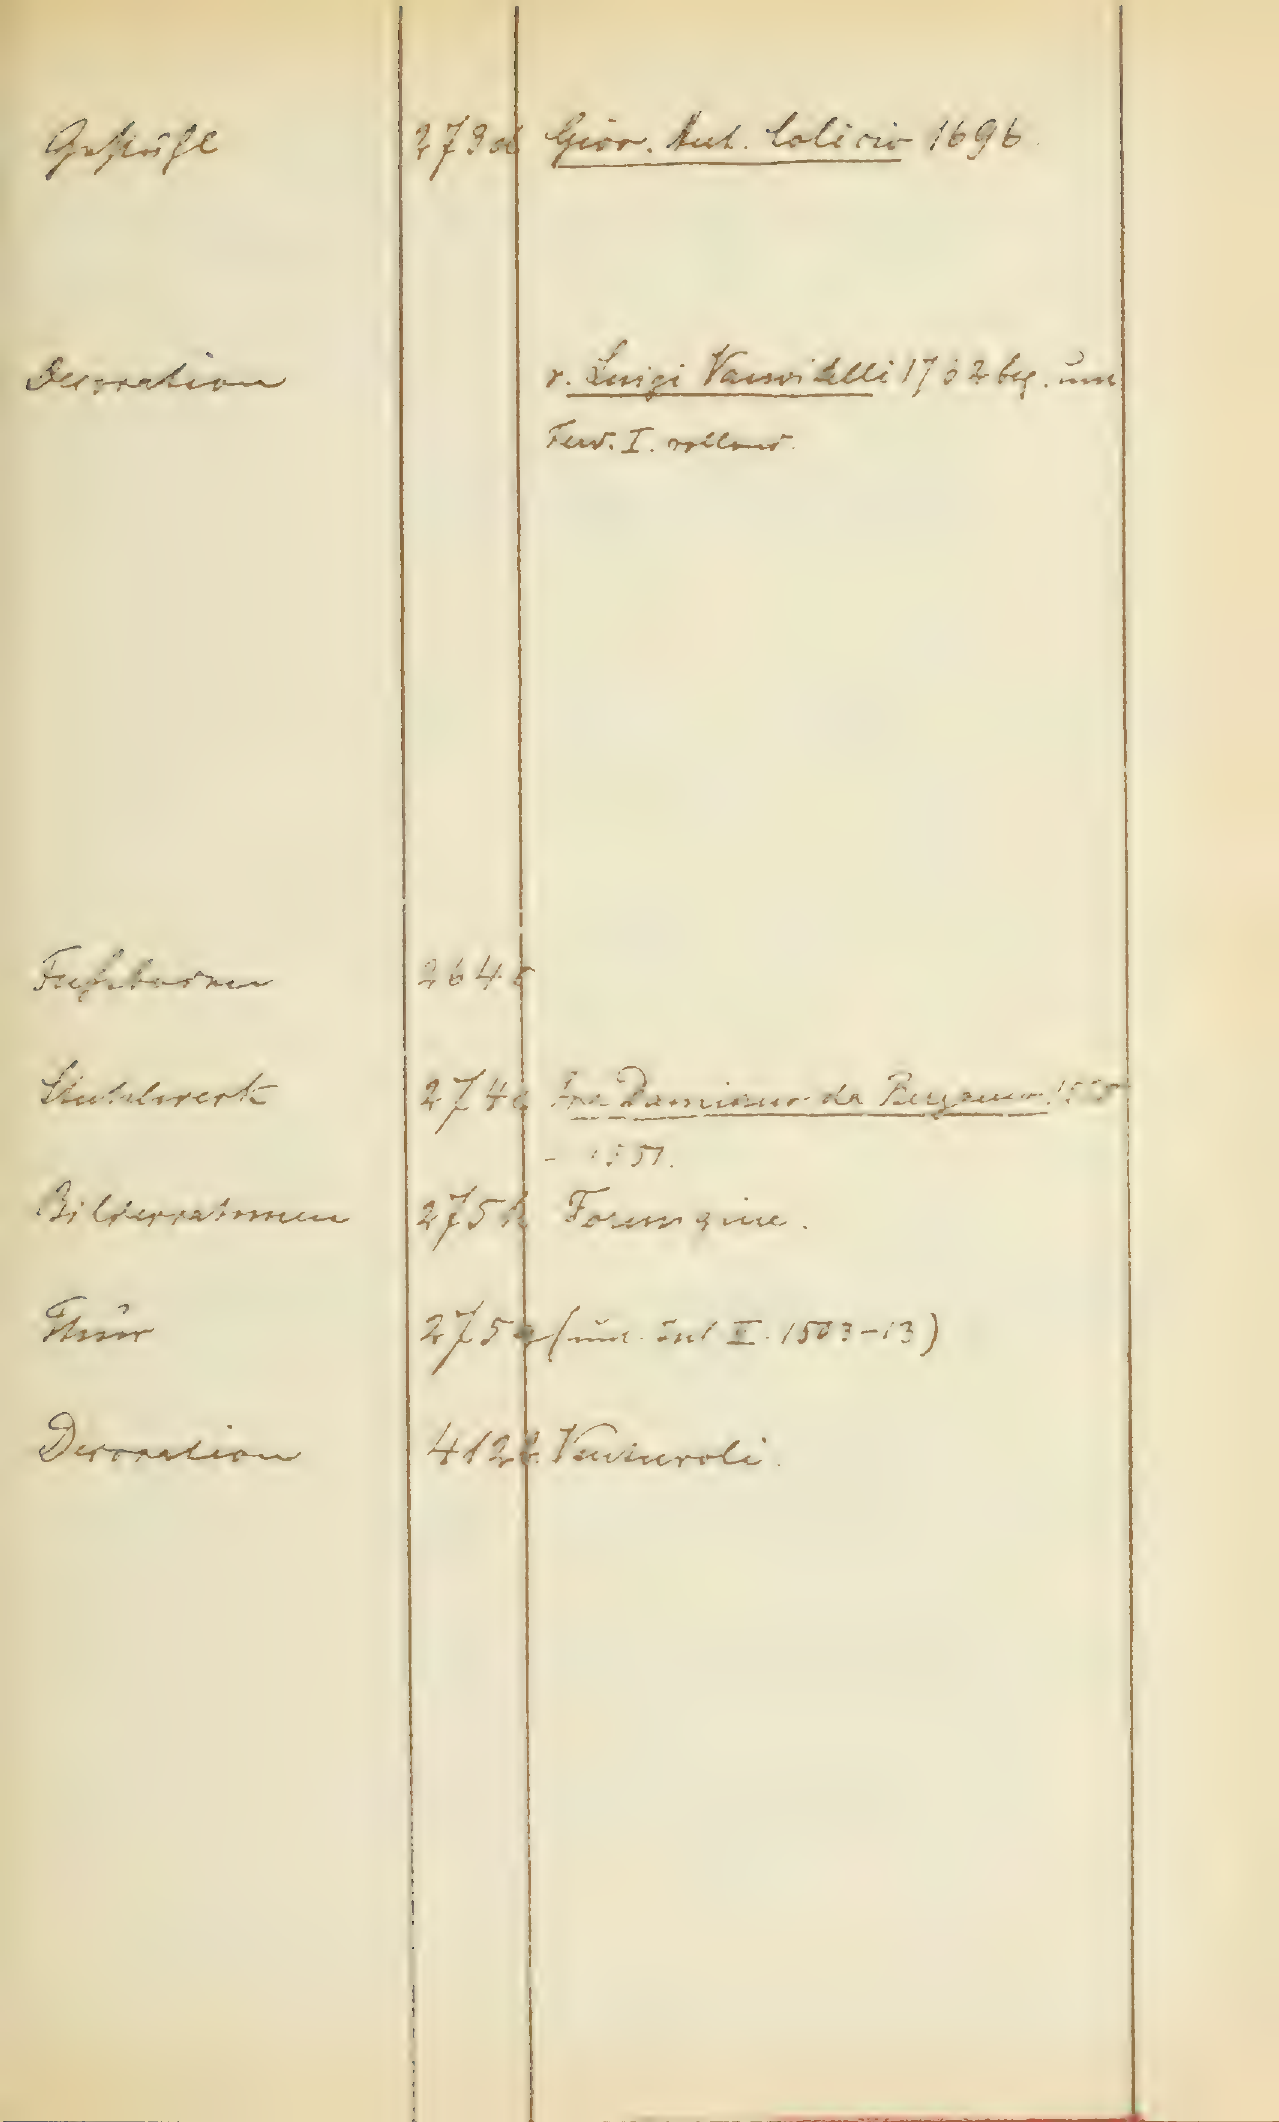 Gestühl 273d Giov. Ant. Colicio 1696
Decoration v. Luigi Vanvitelli 1762 beg. um
Ferd. I. vollend.
Fussboden 264
Stuhlwerk 274 Fra Damiano da Bergamo
- 1551.
Bilderrahmen 275h Formigine.
Thür 275 (un. Jul II. 1503-13)
Decoration 412 Venturoli.